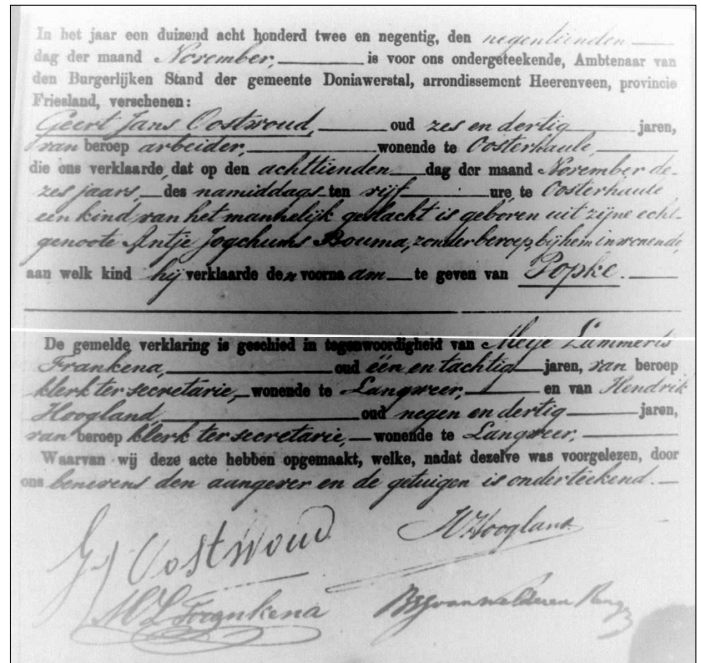 In het jaar een duizend acht honderd twee en negentig, den negentienden
dag der maand November, is voor ons ondergeteekende, Ambtenaar van
den Burgerlijken Stand der gemeente Doniawerstal, arrondissement Heerenveen, provincie
Friesland, verschenen:
Geert Jans Oostwoud, oud zes en dertig jaren,
van beroep arbeider, wonende te Oosterhaule,
die ons verklaarde, dat op den achttienden dag der maand November de-
zes jaars, des namiddags ten vijf ure, te Oosterhaule
een kind van het mannelijk geslacht is geboren uit zijne echt-
genoote Antje Jogchums Bouma, zonder beroep, bij hem inwonende,
aan welk kind hij verklaarde den voornaam te geven van Popke.
De gemelde verklaring is geschied in tegenwoordigheid van Meije Lammerts
Frankena, oud één en tachtig jaren, van beroep
klerk ter secretarie, wonende te Langweer, en van Hendrik
Hoogland, oud negen en dertig jaren,
van beroep klerk ter secretarie, wonende te Langweer,
Waarvan wij deze acte hebben opgemaakt, welke, nadat dezelve was voorgelezen, door
ons benevens den aangever en de getuigen is onderteekend.
G J Oostwoud
H Hoogland
M L Frankena